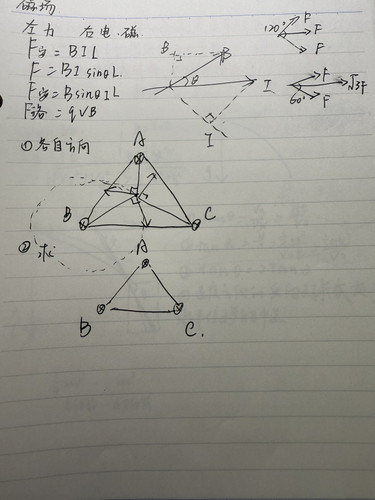 磁场
左力 右电.磁
F安=BIL
F=BI sinθL.
F安=BsinθIL
F洛=qVB
B B θ I I
120° F F F
60° F F √3F
①各自方向
A
B C
②求
A
B C.